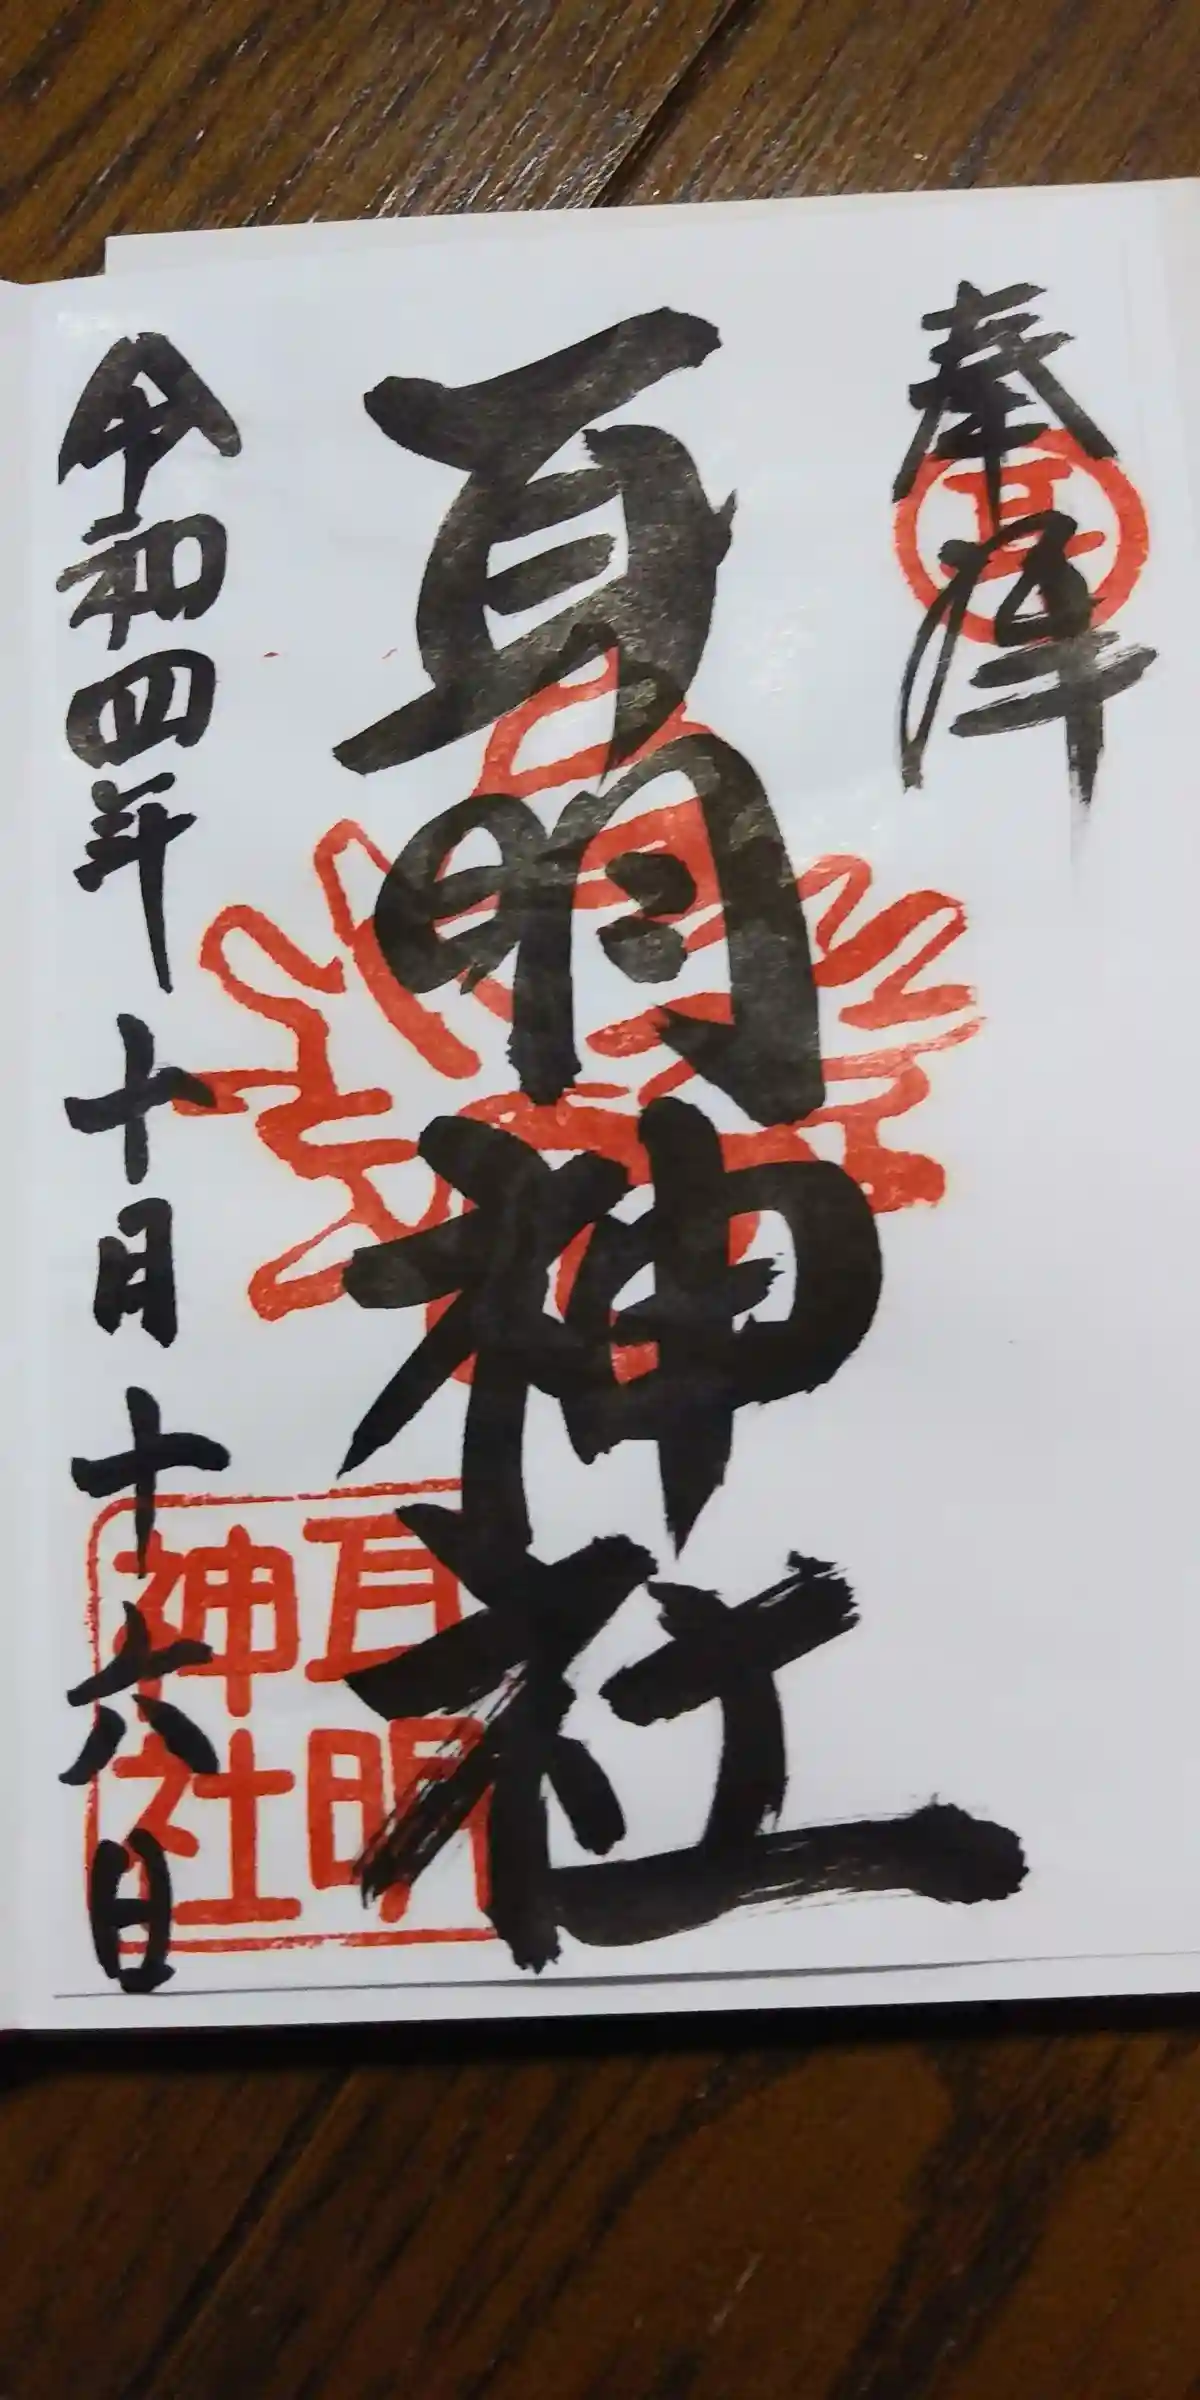 奉拝
耳
耳明神社
耳明
神社
令和四年十月十六日